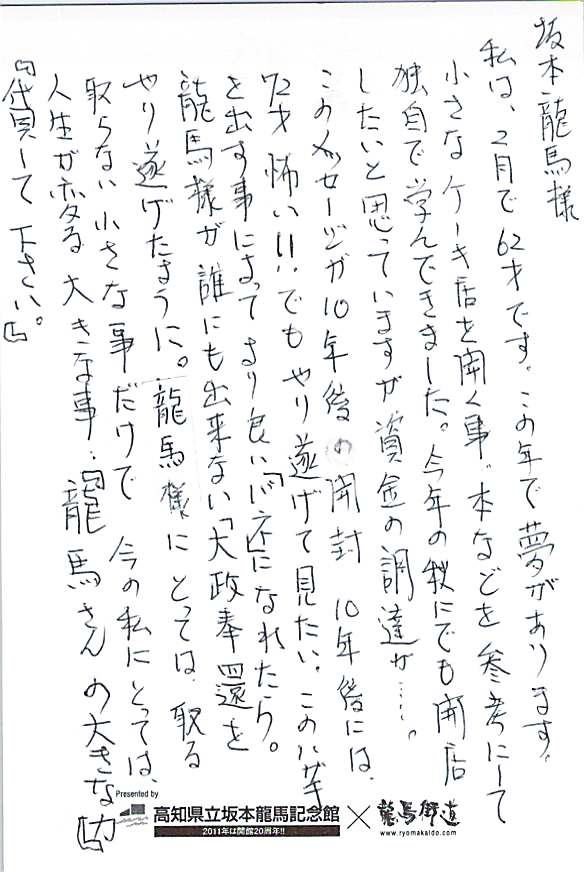 坂本龍馬様
私は、2月で62才です。この年で夢があります。
小さなケーキ店を開く事。本などを参考にして
独自で学んできました。今年の秋にでも開店
したいと思っていますが資金の調達が……。
このメッセージが10年後の開封 10年後には、
72才 怖い!!でも やり遂げて見たい。このハガキ
を出す事によって より良い
になれたら。
龍馬様が誰にも出来ない「大政奉還を
やり遂げたように。龍馬様にとっては、取る
取らない小さな事だけで 今の私にとっては、
人生が変る大きな事:『龍馬さんの大きな力
貸して下さい。』
Presented by
高知県立坂本龍馬記念館
2011年は開館20周年!!
×
龍馬街道
www.ryomakaido.com